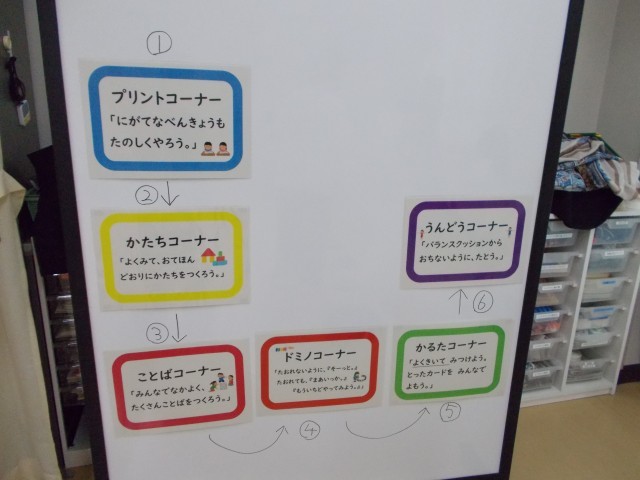 ①
プリントコーナー
「にがてなべんきょうも
たのしくやろう。」
②
かたちコーナー
「よくみて、おてほん
どおりにかたちをつくろう。」
③
ことばコーナー
「みんなでなかよく、
たくさんことばをつくろう。」
④
ドミノコーナー
「たおれないように、『そーっと。』
たおれても、『まあいっか。』
『もういちどやってみよう。』」
⑤
かるたコーナー
「よくきいて みつけよう。
とったカードを みんなで
よもう。」
⑥
うんどうコーナー
「バランスクッションから
おちないように、たとう。」